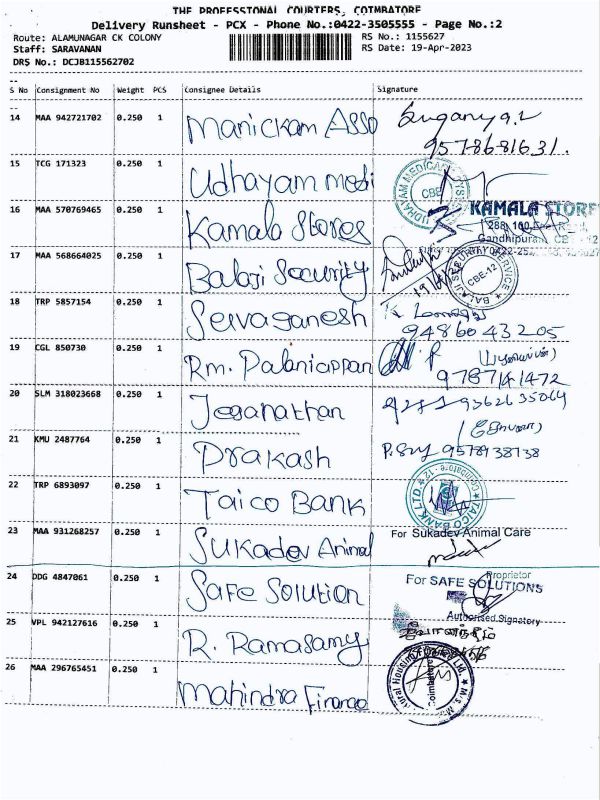 THE PROFESSIONAL COURIERS, COIMBATORE
Delivery Runsheet - PCX - Phone No.:0422-3505555 - Page No.:2
Route: ALAMUNAGAR CK COLONY RS No.: 1155627
Staff: SARAVANAN RS Date: 19-Apr-2023
DRS No.: DCJB115562702
S No Consignment No Weight PCS Consignee Details Signature
14 MAA 942721702 0.250 1 Manickam Asso
9578681631.
15 TCG 171323 0.250 1 Udhayam medi
UDHAYAM MEDICAL CBE
16 MAA 570769465 0.250 1 Kamala Stores KAMALA STORE
288, 100 Feet Road,
Gandhipuram, CBE - 12
17 MAA 568664025 0.250 1 Balaji Security
BALAJI SECURITY SERVICE CBE-12
18 TRP 5857154 0.250 1 Selvaganesh
9486043205
19 CGL 850730 0.250 1 Rm. Palaniappan
9787141472
20 SLM 318023668 0.250 1 Jeganathan 9362635064
21 KMU 2487764 0.250 1 Prakash 9578938738
22 TRP 6893097 0.250 1 Taico Bank
TAICO BANK LTD Coimbatore - 12
23 MAA 931268257 0.250 1 Sukadev Animal For Sukadev Animal Care
Proprietor
24 DDG 4847061 0.250 1 Safe Solution For SAFE SOLUTIONS
Authorised Signatory
25 VPL 942127616 0.250 1 R. Ramasamy
26 MAA 296765451 0.250 1 Mahindra Finance
Rural Housing Finance Ltd Coimbatore